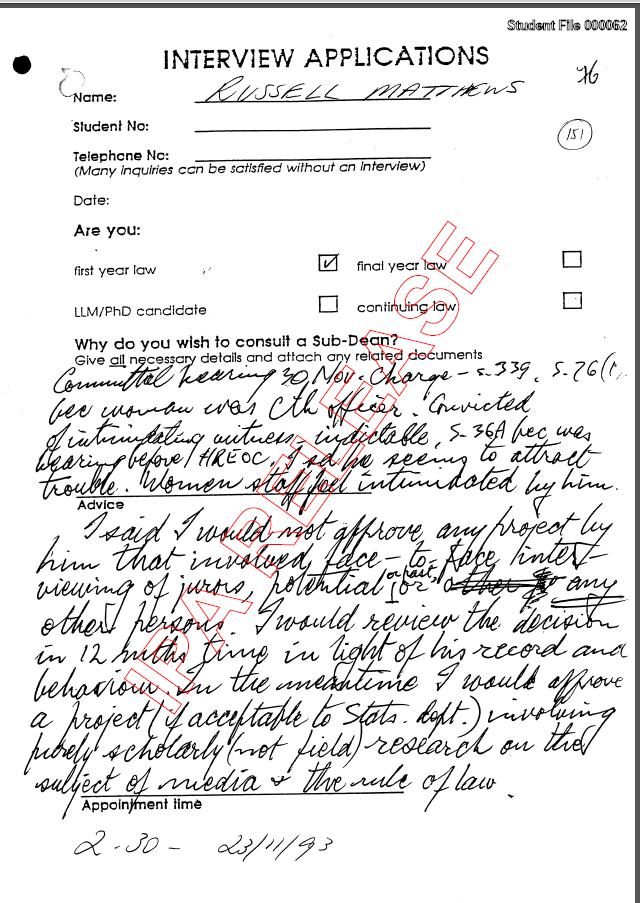 Student File 000062
INTERVIEW APPLICATIONS
76
Name: RUSSELL MATTHEWS
Student No:
151
Telephone No:
(Many inquiries can be satisfied without an interview)
Date:
Are you:
first year law ☑ final year law ☐
LLM/PhD candidate ☐ continuing law ☐
Why do you wish to consult a Sub-Dean?
Give all necessary details and attach any related documents
Committal hearing 30, Nov. Charge - s.339, S.76(
bec woman was Cth officer. Convicted
of intimidating witness, indictable, S-36A bec was
hearing before HREOC. I sd he seems to attract
trouble. Women staff feel intimidated by him.
Advice
I said I would not approve any project by
him that involved face-to-face inter-
viewing of jurors, potential or past, or any
other persons. I would review the decision
in 12 mths time in light of his record and
behaviour. In the meantime I would approve
a project (if acceptable to Stats. dept.) involving
purely scholarly (not field) research on the
subject of media & the rule of law.
Appointment time
2.30 - 23/11/93
IPA RELEASE